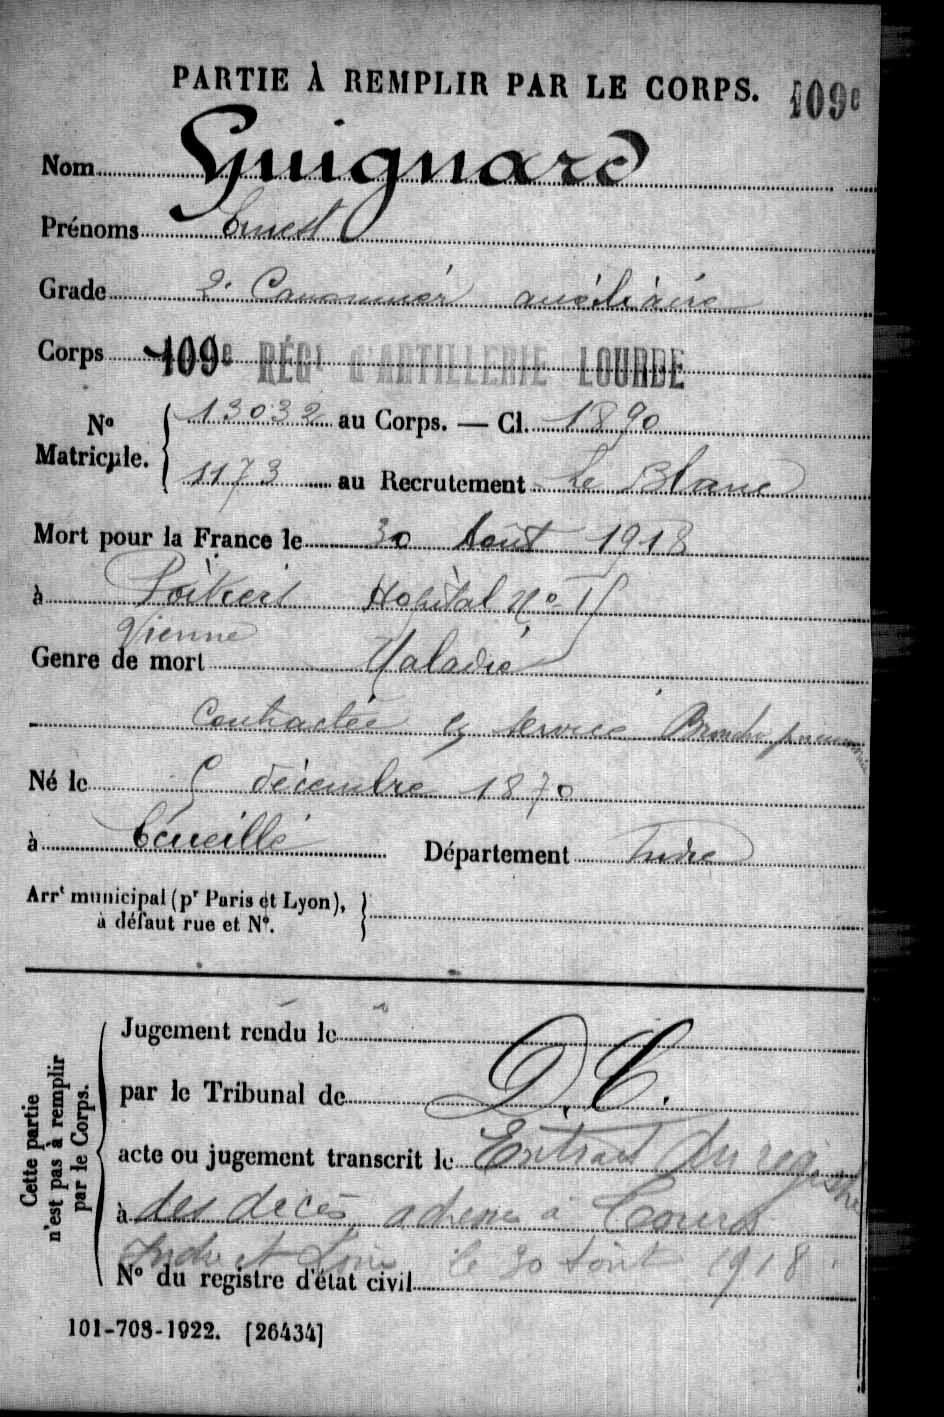 PARTIE À REMPLIR PAR LE CORPS. 109e
Nom Guignard
Prénoms Ernest
Grade 2e Canonnier auxiliaire
Corps 109e RÉGt d'ARTILLERIE LOURDE
No Matricule. 13032 au Corps. — Cl. 1890
1173 au Recrutement Le Blanc
Mort pour la France le 30 Août 1918
à Poitiers Hopital No
Vienne
Genre de mort Maladie
Contractée en service Broncho pneumonie
Né le 5 décembre 1870
à Écueillé Département Indre
Arrt municipal (pr Paris et Lyon),
à défaut rue et No.
Cette partie
n'est pas à remplir
par le Corps.
Jugement rendu le
par le Tribunal de D.C.
acte ou jugement transcrit le Extrait du registre
à des décès, adressé à Tours
Indre et Loire le 30 Août 1918.
No du registre d'état civil
101-708-1922. [26434]